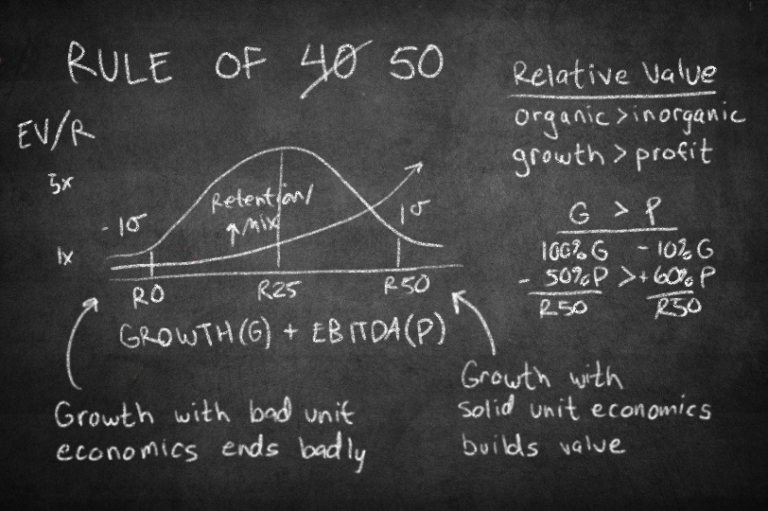 RULE OF 40 50
EV/R
5x
1x
-1σ
Retention/
↑Mix
1σ
R0
R25
R50
GROWTH(G) + EBITDA(P)
Growth with bad unit
economics ends badly
Growth with
solid unit economics
builds value
Relative Value
organic > inorganic
growth > profit
G > P
100% G -10% G
- 50% P > +60% P
R50 R50